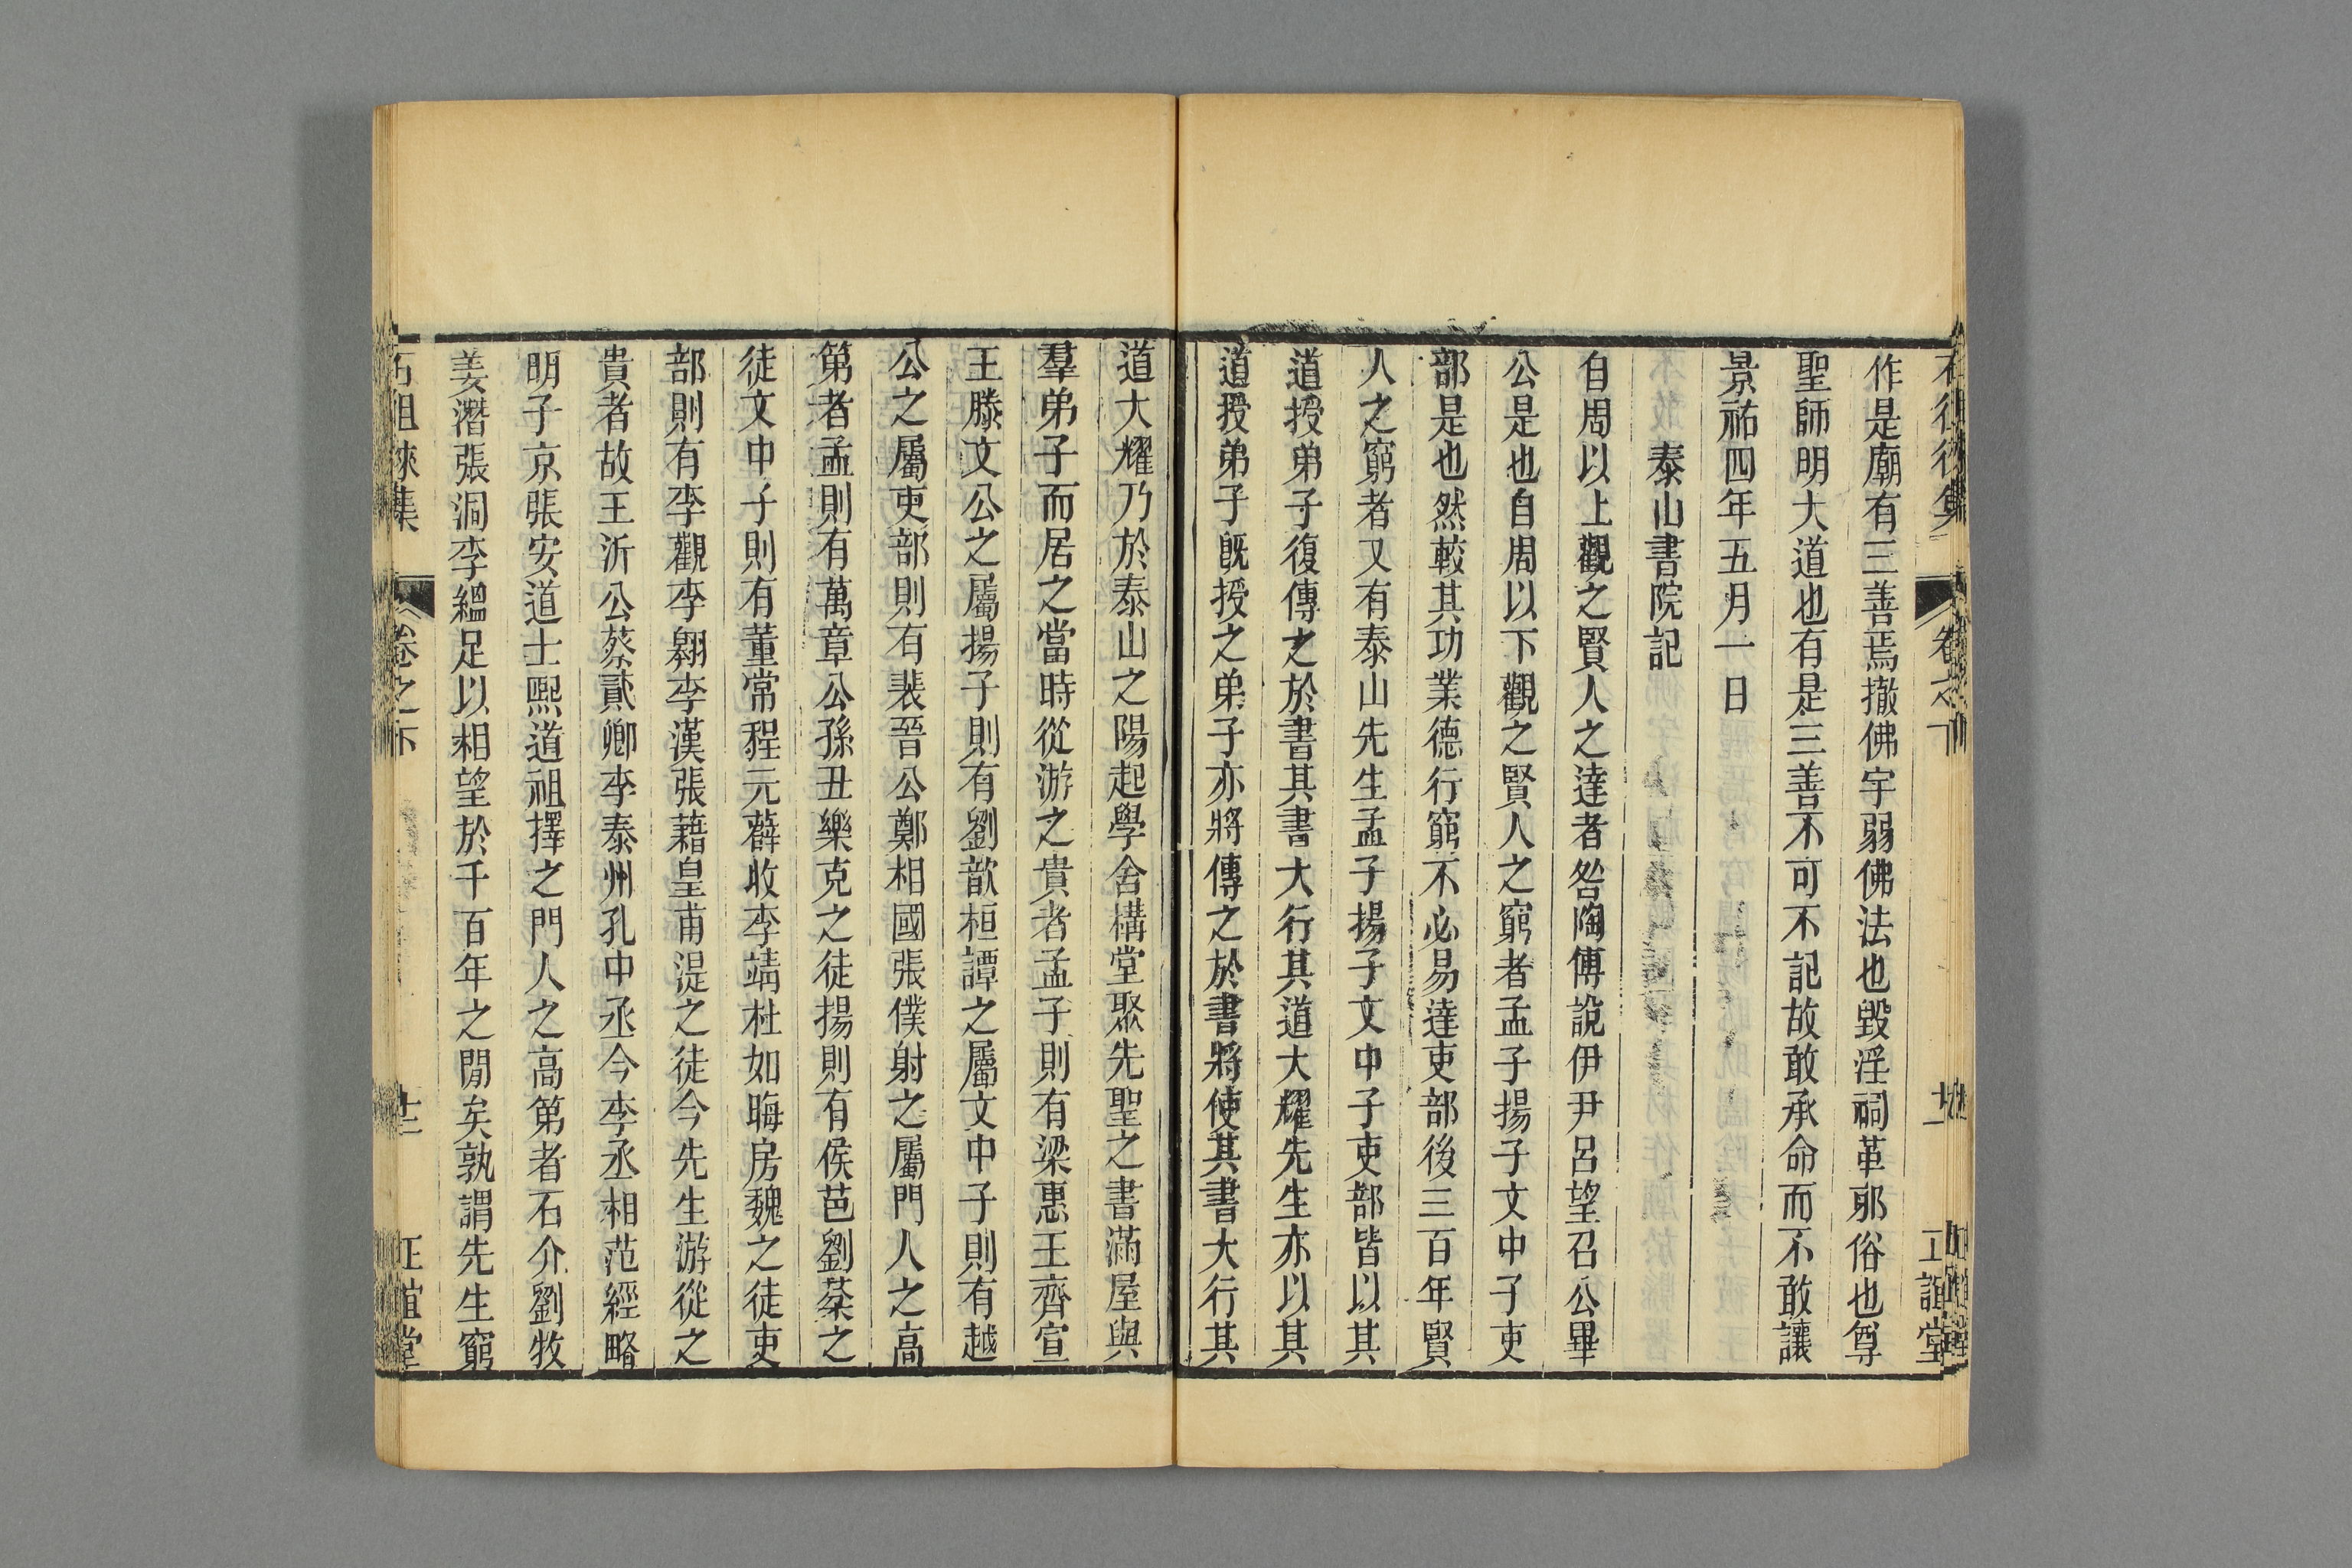 作是廟有三善焉撤佛宇弱佛法也毀淫祠革邪俗也尊
聖師明大道也有是三善不可不記故敢承命而不敢讓
景祐四年五月一日
泰山書院記
自周以上觀之賢人之達者咎陶傅說伊尹呂望召公畢
公是也自周以下觀之賢人之窮者孟子揚子文中子吏
部是也然較其功業德行窮不必易達吏部後三百年賢
人之窮者又有泰山先生孟子揚子文中子吏部皆以其
道授弟子復傳之於書其書大行其道大耀先生亦以其
道授弟子旣授之弟子亦將傳之於書將使其書大行其
道大耀乃於泰山之陽起學舍構堂聚先聖之書滿屋與
羣弟子而居之當時從游之貴者孟子則有梁惠王齊宣
王滕文公之屬揚子則有劉歆桓譚之屬文中子則有越
公之屬吏部則有裴晉公鄭相國張僕射之屬門人之高
第者孟則有萬章公孫丑樂克之徒揚則有侯芭劉棻之
徒文中子則有董常程元薛收李靖杜如晦房魏之徒吏
部則有李觀李翱李漢張藉皇甫湜之徒今先生游從之
貴者故王沂公蔡貳卿李泰州孔中丞今李丞相范經略
明子京張安道士熙道祖擇之門人之高第者石介劉牧
姜潛張洞李縕足以相望於千百年之閒矣孰謂先生窮
石徂徠集
卷之下
正誼堂